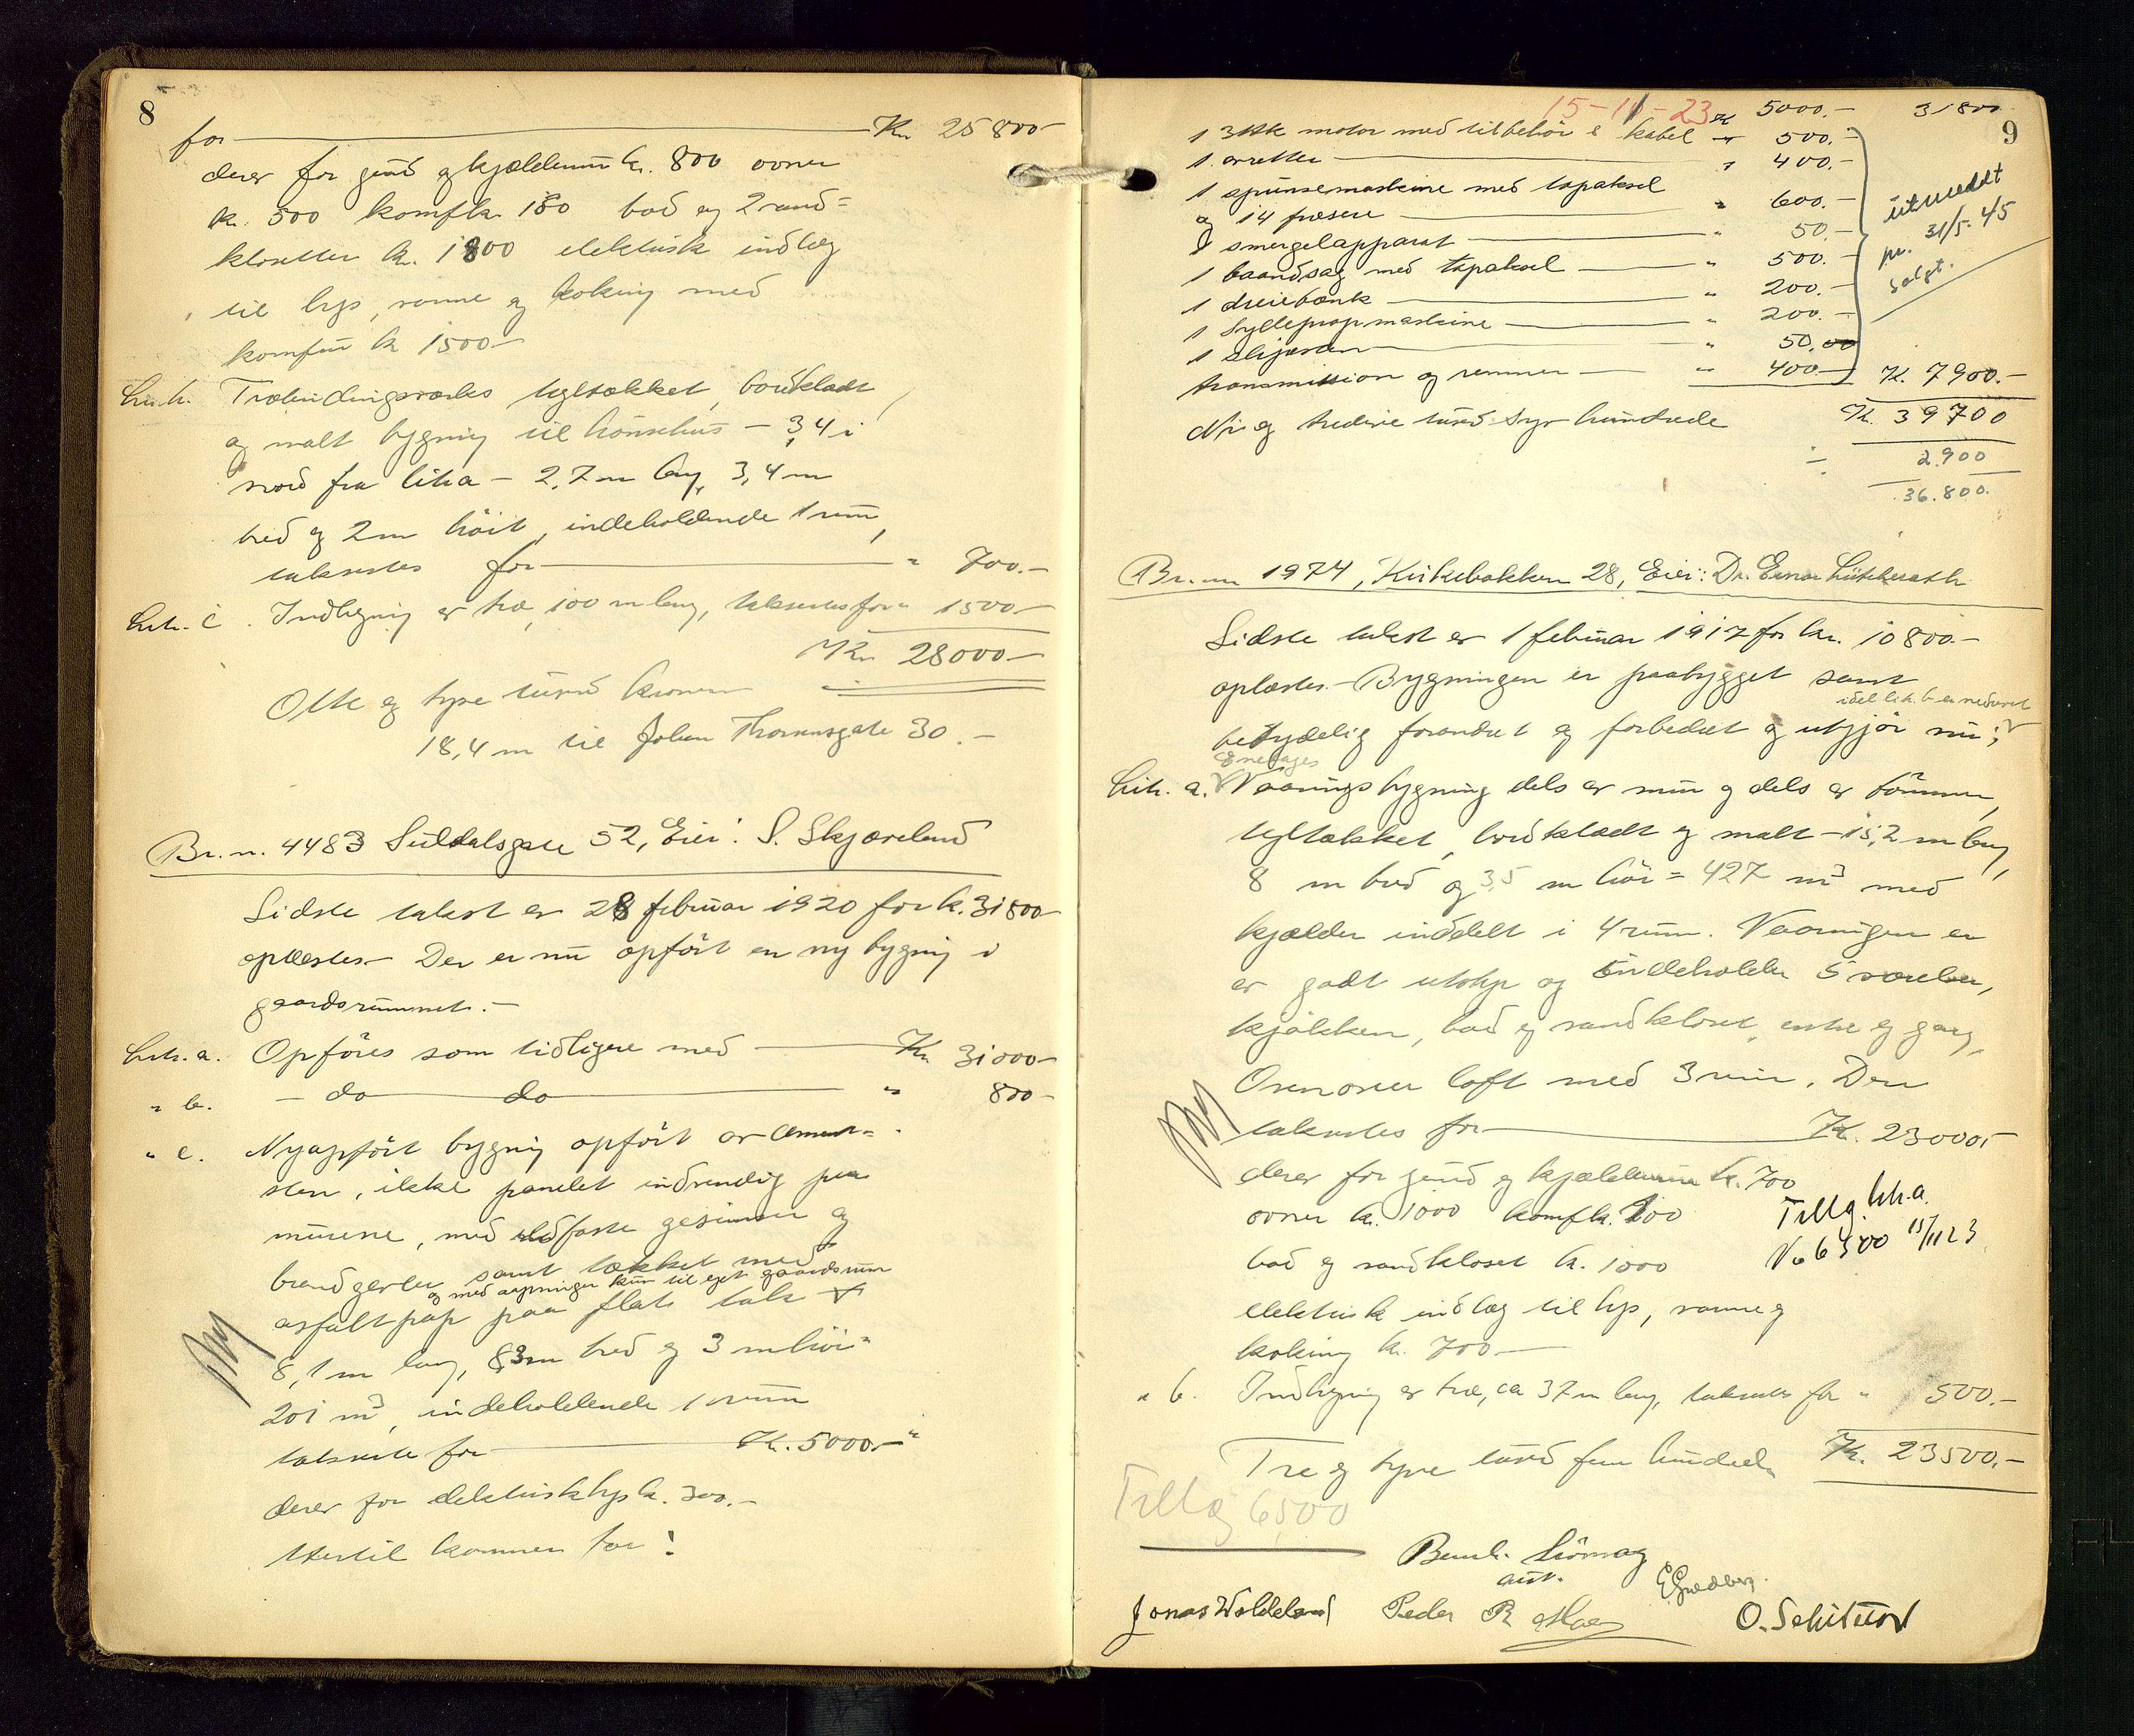 8
for Kr. 25800-
derav for grund og kjælderrum kr. 800 ovner
kr. 500 komfkr. 180 bad og 2 vand=
klosetter kr. 1800 elektrisk indlæg
til lys, varme og koking med
komfur kr 1500-
Litr. b. Træbindingsværks tegltækket, bordklædt
og malt bygning til hönsehus - 3,4 i
nord fra litra - 2,7 m lang, 3,4 m
bred og 2 m höit, indeholdende 1 rum,
takseres for " 700.-
Litr. c. Indhegning av træ, 100 m lang, takseres for " 1500-
Kr. 28000-
Otte og tyve tusind kroner
18,4 m til Johan Thorsensgate 30.-
Br. nr. 4483 Suldalsgate 52, Eier: S. Skjæveland
Sidste takst av 28 februar 1920 for kr. 31800-
oplæstes- Der er nu opfört en ny bygning i
gaardsrummet.-
Litr. a. Opföres som tidligere med Kr. 31000-
" b. - do do " 800-
" c. Nyopfört bygning opfört av cement=
sten, ikke panelet indvendig paa
murene, med ildfaste gesimser og
brandgavler samt tækket med
og med aapninger kun til eget gaardsrum
asfaltpap paa flatt tak
8,1 m lang, 8,3 m bred og 3 m höi=
201 m³, indeholdende 1 rum
takseret for Kr. 5000.-
derav for elektrisk lys kr. 300.-
Hertil kommer for:
9
15-11-23 Kr. 5000.- 31800
1 3 Hk motor med tilbehör & kabel " 500.-
1 avretter " 400.-
1 spunsemaskine med topaksel
og 14 fræsere " 600.-
1 smergelapparat " 50.-
1 baandsag med topaksel " 500.-
1 dreiebænk " 200.-
1 Syllepropmaskine " 200.-
1 Slipesten " 50,00
transmission og remmer " 400.- Kr. 7900.-
utmeldt
pr. 31/5-45
solgt.
Ni og tredive tusind syv hundrede Kr. 39700
÷ 2.900
36.800.
Br. nr 1974, Kirkebakken 28, Eier: Dr. Einar Lütcherath
Sidste takst av 1 februar 1917 for kr. 10800.-
oplæstes- Bygningen er paabygget samt
idet litr. b er nedrevet
betydelig forandret og forbedret og utgjör nu;
Enetages
Litr. a. Vaaningsbygning dels av mur og dels av tömmer,
tegltækket, bordklædt og malt - 15,2 m lang,
8 m bred og 3,5 m höi = 427 m³ med
kjælder inddelt i 4 rum. Vaaningen er
av godt utstyr og indeholder 5 værelser,
kjökken, bad og vandkloset, entre og gang,
Ovenover loft med 3 rum. Den
takseres for Kr. 23000.-
derav for grund og kjælderrum kr. 700
ovner kr. 1000 komfkr. 200
bad og vandkloset kr. 1000
elektrisk indlæg til lys, varme og
koking kr. 700-
Tillæg. litr. a.
No 6500 15/11 23
" b. Indhegning av træ, ca 37 m lang, takseres for " 500.-
Tre og tyve tusind fem hundrede Kr. 23500.-
Tillæg 6500
Jonas Waldeland Peder R. O. Schitter